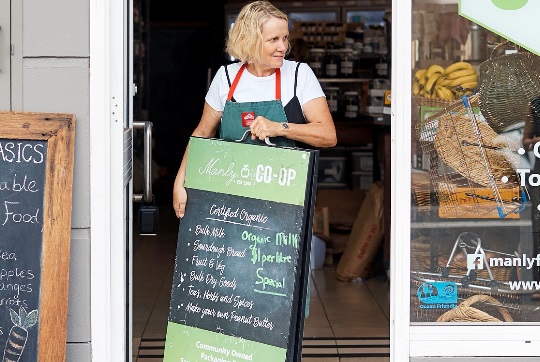 ASICS
able
Food
ea
pples
nges
rrots
Manly CO-OP
Certified Organic
• Bulk Milk
• Sourdough Bread
• Fruit & Veg
• Bulk Dry Goods
• Teas, Herbs and Spices
• Make your own Peanut Butter
Organic Milk
$1 per litre
Special
Community Owned
• To
manlyf
www.
Ocean Friendly